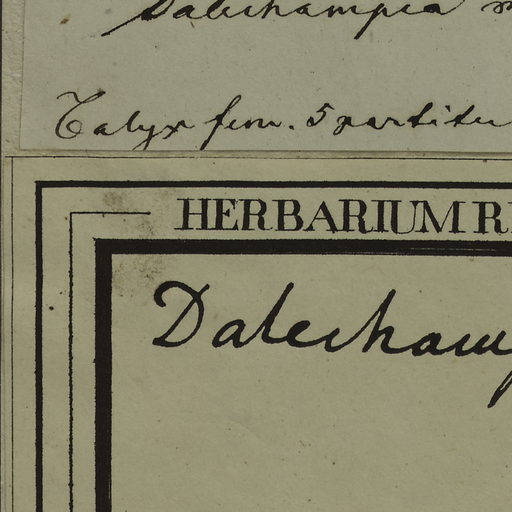 Dalechampia
Calyx fem. 5 partitu
HERBARIUM R
Dalechamp